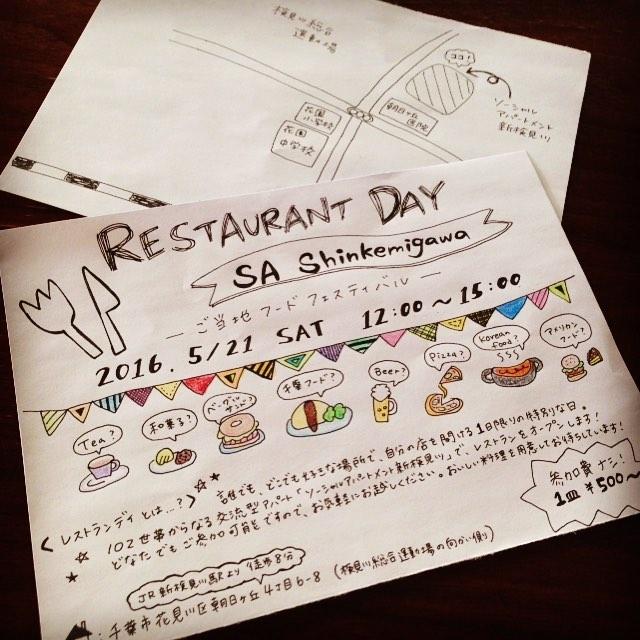 検見川総合
運動場
ココ!
ソーシャル
アパートメント
新検見川
朝日ヶ丘
医院
花園
小学校
花園
中学校
RESTAURANT DAY
SA Shinkemigawa
ご当地フードフェスティバル
2016. 5/21 SAT 12:00～15:00
Tea?
和菓子?
千葉フード?
Beer?
Pizza?
Korean food?
アメリカンフード?
<レストランデイとは…?>
誰でも、どこでも好きな場所で、自分の店を開ける1日限りの特別な日。
102世帯からなる交流型アパート「ソーシャルアパートメント新検見川」で、レストランをオープンします!
どなたでもご参加可能ですので、お気軽にお越しください。おいしい料理を用意してお待ちしています!
参加費ナシ!
1皿 ¥500～
JR新検見川駅より徒歩8分
:千葉市花見川区朝日ヶ丘4丁目6-8 (検見川総合運動場の向かい側)